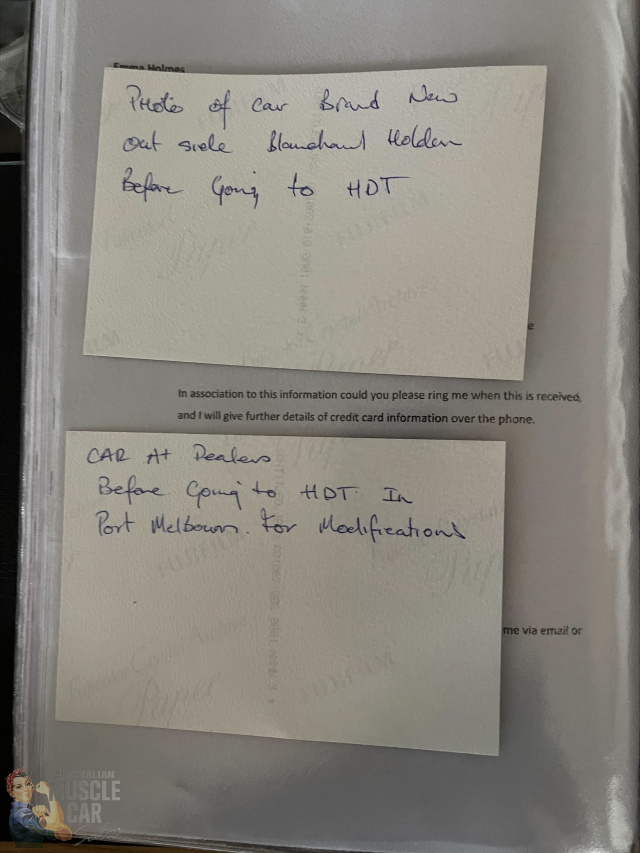 Emma Holmes
Photo of Car Brand New
out side Blanchard Holden
Before Going to HDT
FUJIFILM
e
In association to this information could you please ring me when this is received,
and I will give further details of credit card information over the phone.
CAR At Dealers
Before Going to HDT In
Port Melbourn. For Modifications
FUJIFILM
me via email or
Fujicolor Crystal Archive
Paper
FUJIFILM
AUSTRALIAN
MUSCLE
CAR
Sales